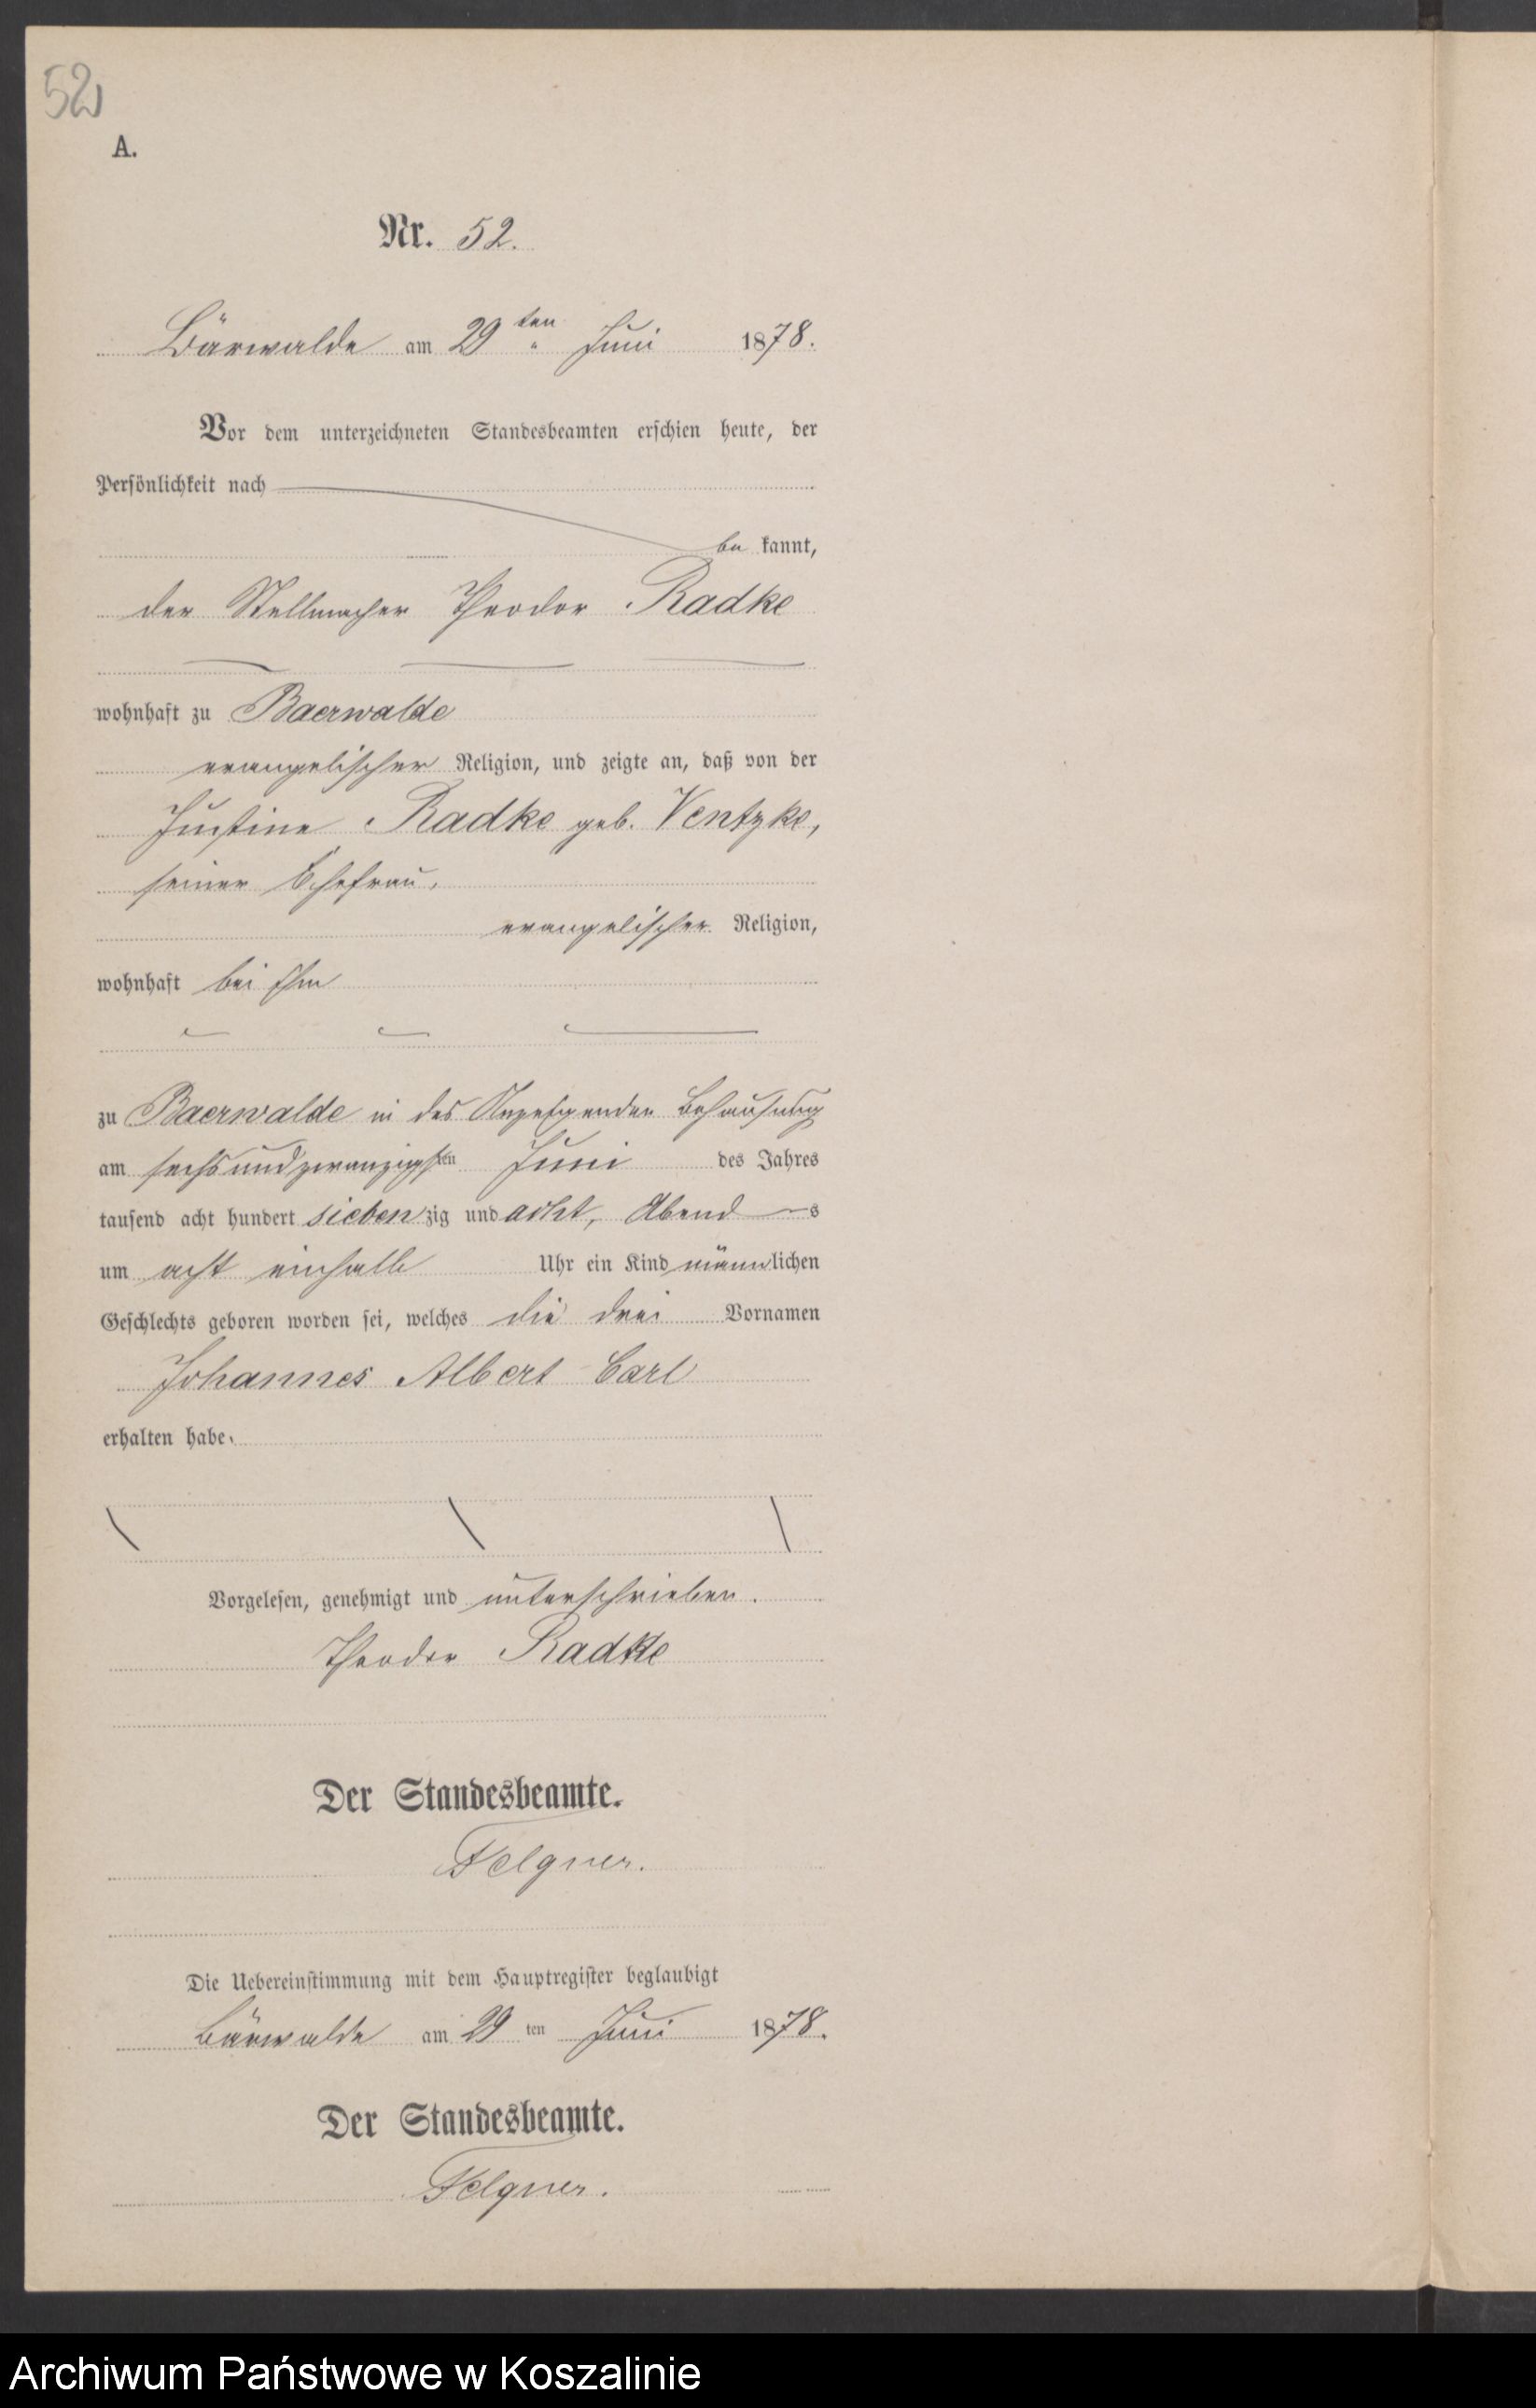 52
A.
Nr. 52.
Bärwalde am 29ten Juni 1878.
Vor dem unterzeichneten Standesbeamten erschien heute, der
Persönlichkeit nach
be kannt,
der Stellmacher Theodor Radke
wohnhaft zu Baerwalde
evangelischer Religion, und zeigte an, daß von der
Justine Radke geb. Ventzke,
seiner Ehefrau,
evangelischer Religion,
wohnhaft bei ihm
zu Baerwalde in des Anzeigenden Behausung
am sechsundzwanzigsten Juni des Jahres
tausend acht hundert siebenzig und acht, Abends
um acht einhalb Uhr ein Kind männlichen
Geschlechts geboren worden sei, welches die drei Vornamen
Johannes Albert Carl
erhalten habe.
Vorgelesen, genehmigt und unterschrieben.
Theodor Radke
Der Standesbeamte.
Felgner.
Die Uebereinstimmung mit dem Hauptregister beglaubigt
Bärwalde am 29 ten Juni 1878.
Der Standesbeamte.
Felgner.
Archiwum Państwowe w Koszalinie